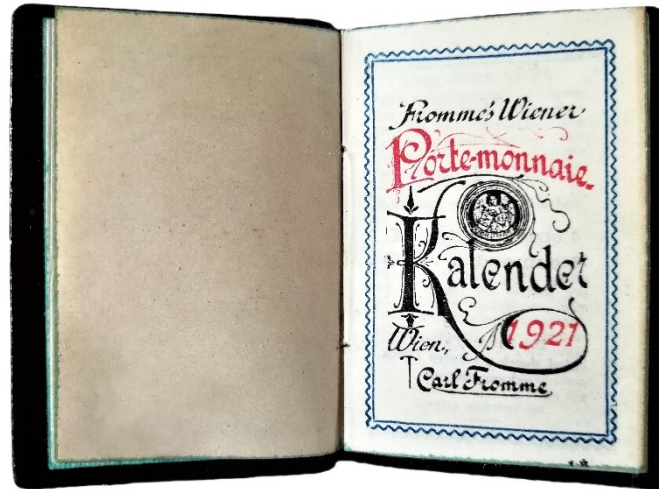 Fromme's Wiener
Porte-monnaie-
Kalender
1921
Wien,
Carl Fromme